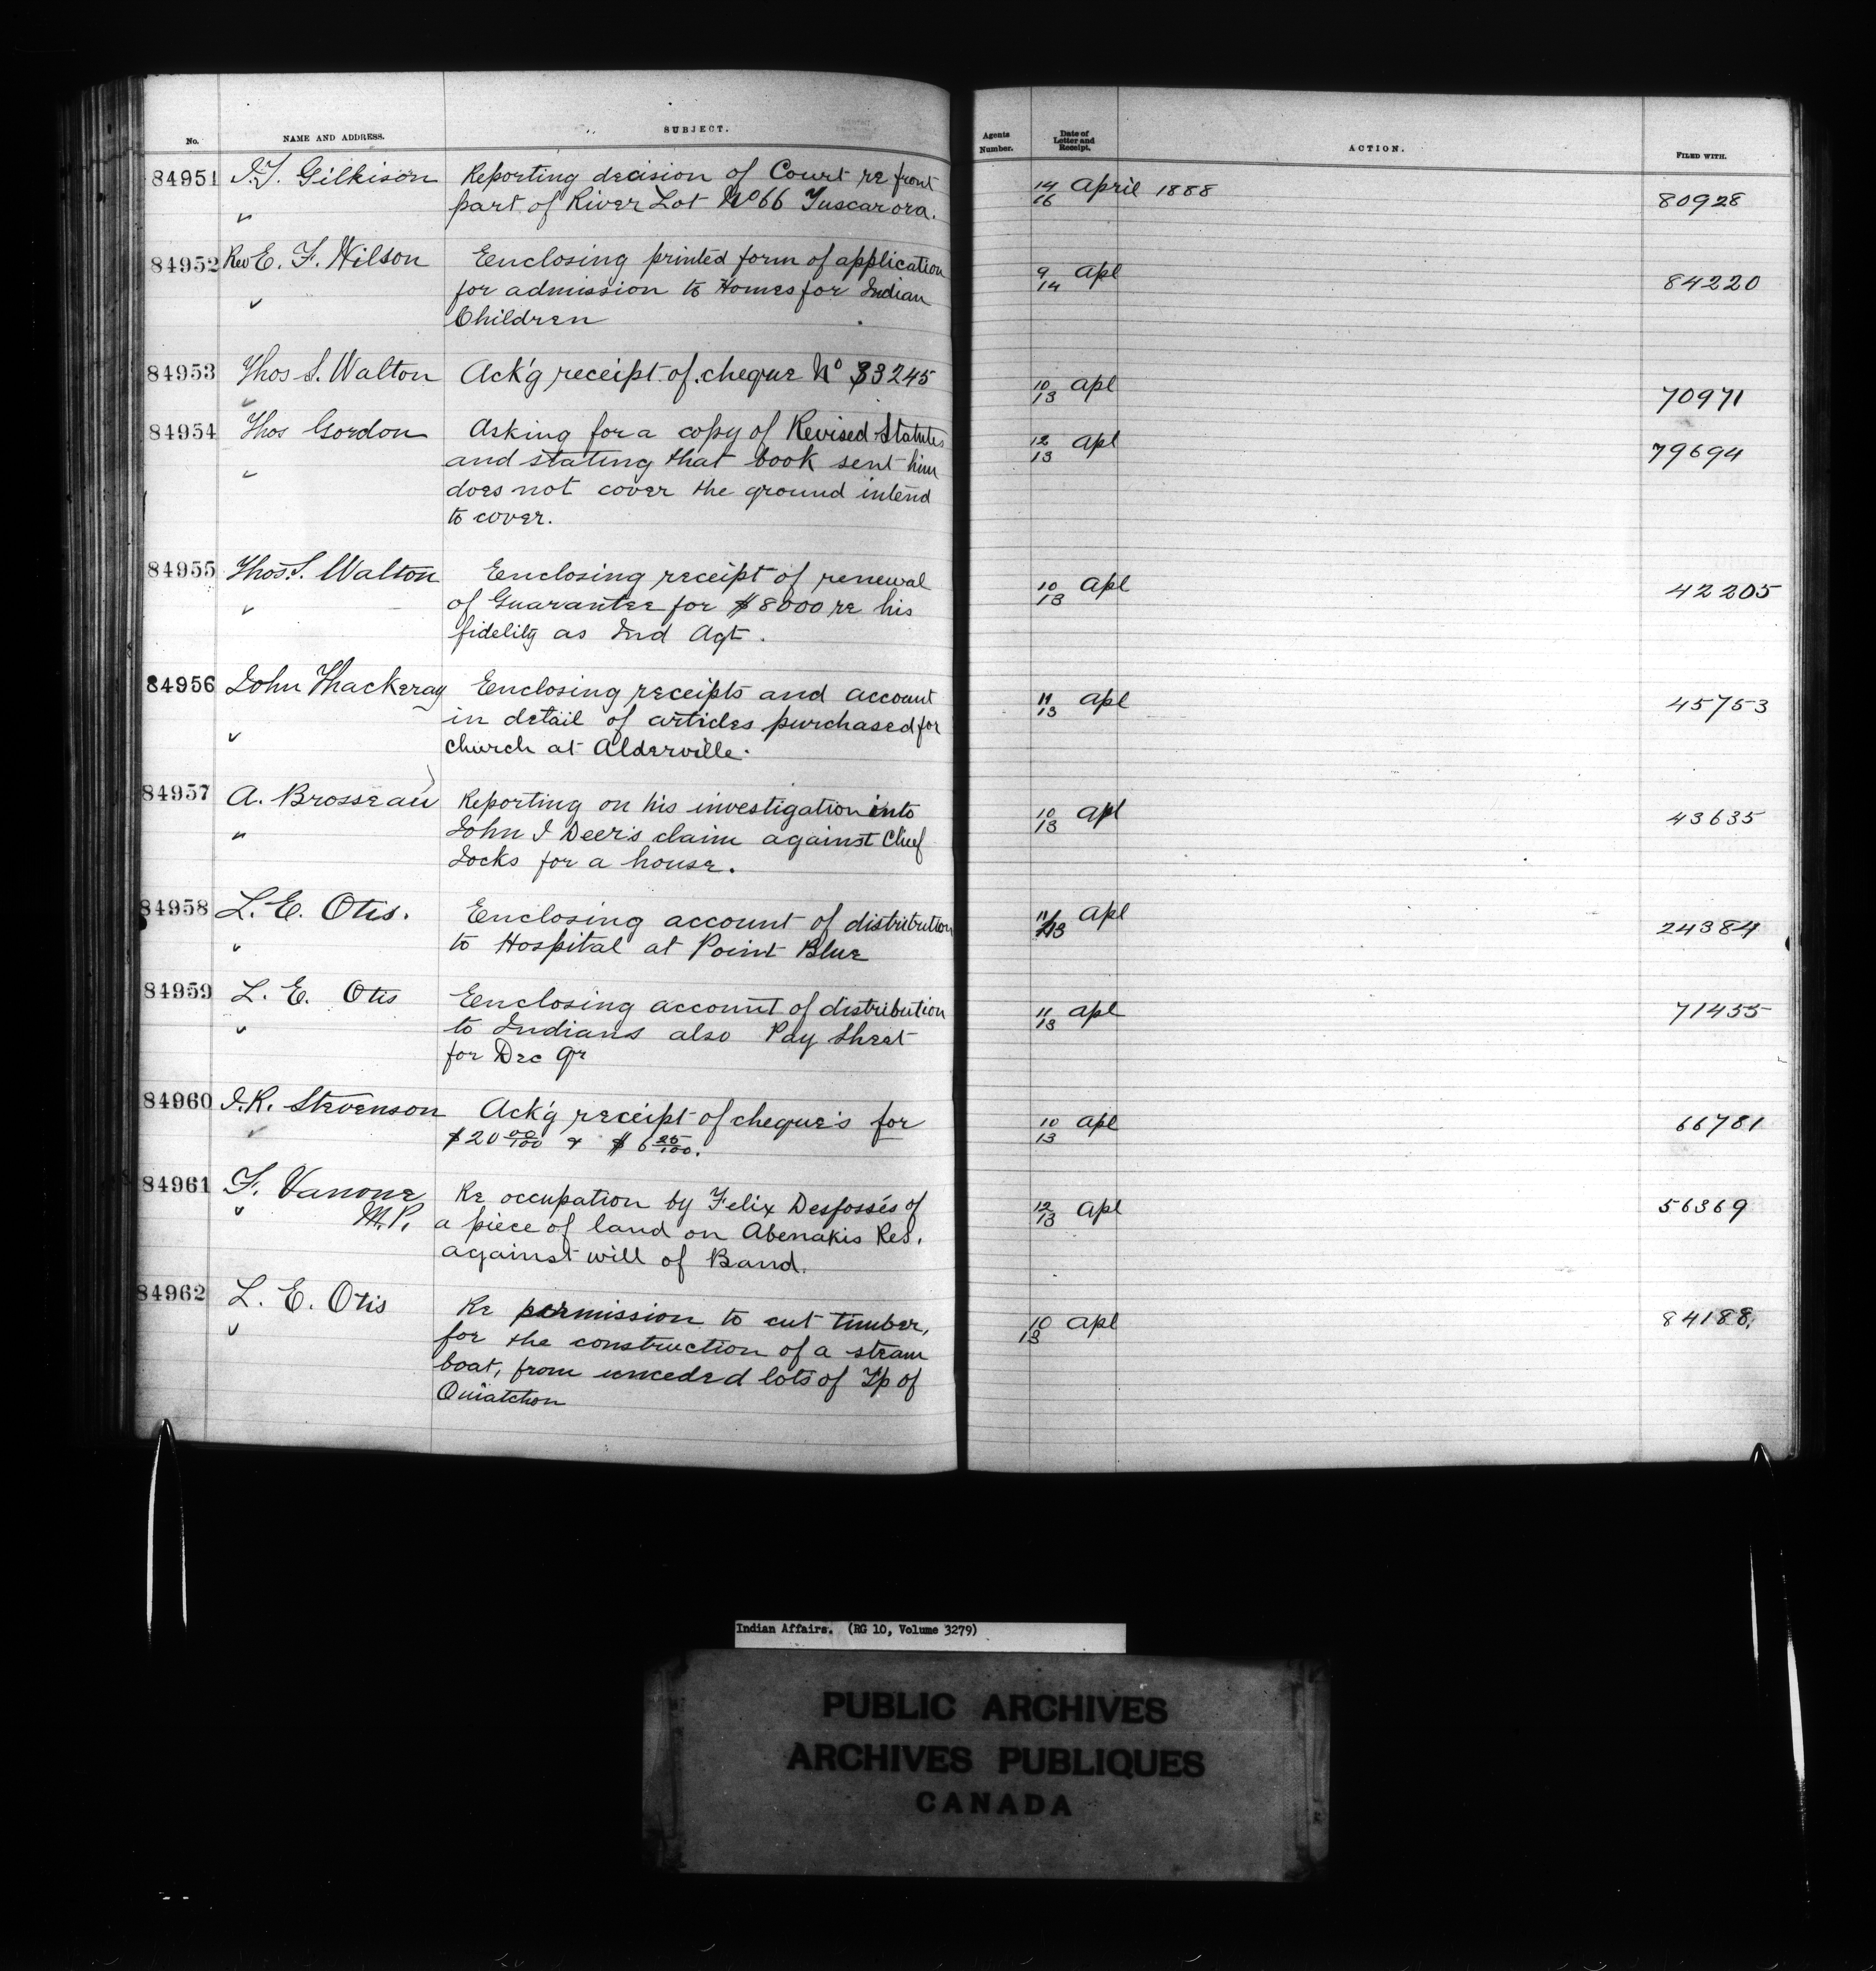 No. NAME AND ADDRESS. SUBJECT. Agents Number. Date of Letter and Receipt. ACTION. FILED WITH.
84951 J.T. Gilkison Reporting decision of Court re front 14/16 April 1888 80928
" part of River Lot No 66 Tuscarora.
84952 Rev E. F. Wilson Eenclosing printed form of application 9/14 Apl 84220
" for admission to Homes for Indian
Children
84953 Thos S. Walton Ack'g receipt of cheque No 33245 10/13 Apl 70971
"
84954 Thos Gordon Asking for a copy of Revised Statutes 12/13 Apl 79694
" and stating that book sent him
does not cover the ground intend
to cover.
84955 Thos. S. Walton Enclosing receipt of renewal 10/13 Apl 42205
" of Guarantee for $8000 re his
fidelity as Ind Agt.
84956 John Thackeray Enclosing receipts and account 11/13 Apl 45753
in detail of articles purchased for
" church at Alderville.
84957 A. Brosseau Reporting on his investigation into 10/13 Apl 43635
" John I Deer's claim against Chief
Jocks for a house.
84958 L. E. Otis. Enclosing account of distribution 11/13 Apl 24384
" to Hospital at Point Blue
84959 L. E. Otis Eenclosing account of distribution 11/13 Apl 71455
" to Indians also Pay Sheet
for Dec Qr
84960 J.R. Stevenson Ack'g receipt of cheque's for 10/13 Apl 66781
" $20 00/100 & $6 25/100.
84961 F. Vanone Re occupation by Felix Desfossés of 12/13 Apl 56369
" M.P. a piece of land on Abenakis Res.
against will of Band.
84962 L. E. Otis Re permission to cut timber, 10/13 Apl 84188
" for the construction of a steam
boat, from unceded lots of Tp of
Ouiatchon
Indian Affairs. (RG 10, Volume 3279)
PUBLIC ARCHIVES
ARCHIVES PUBLIQUES
CANADA